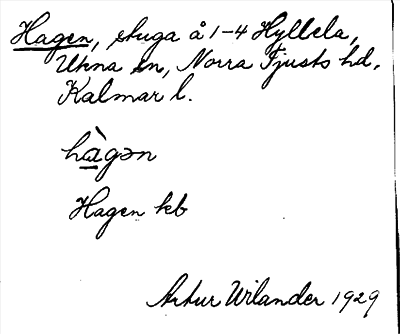 Hagen, stuga å 1-4 Hyllela,
Ukna sn, Norra Tjusts hd.
Kalmar l.
hàgən
Hagen kb
Artur Wilander 1929